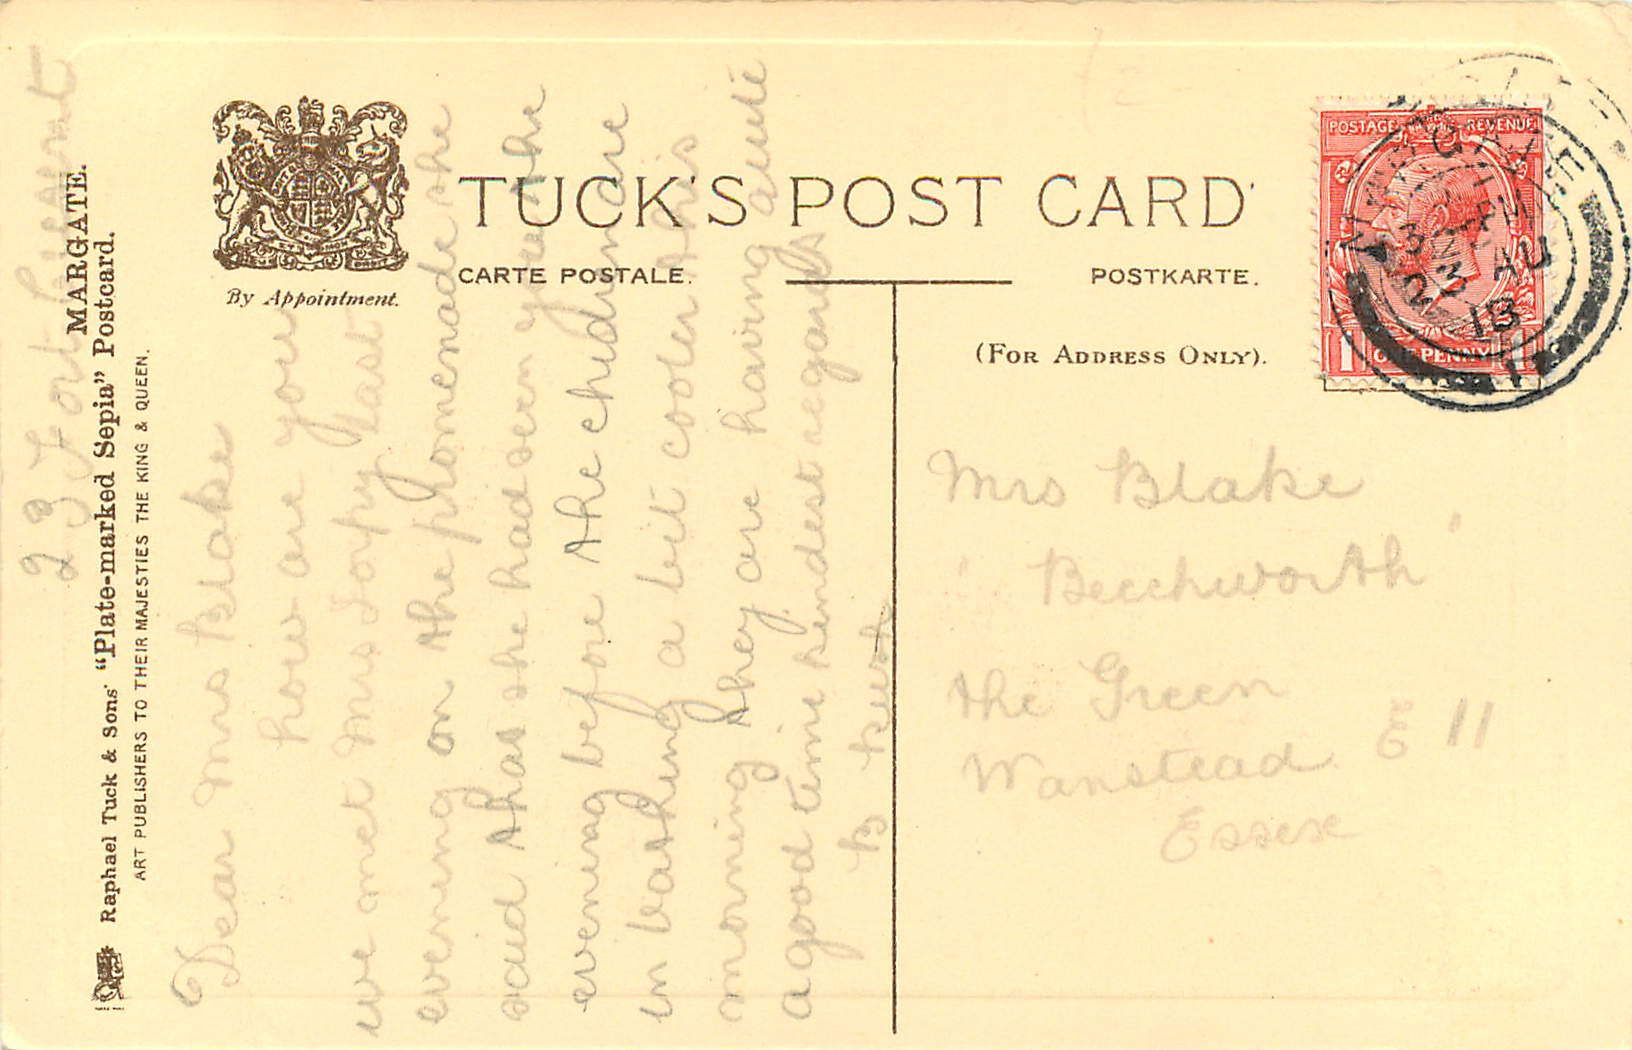 TUCK'S POST CARD
CARTE POSTALE.
POSTKARTE.
By Appointment.
(FOR ADDRESS ONLY).
MARGATE.
Raphael Tuck & Sons' "Plate-marked Sepia" Postcard.
ART PUBLISHERS TO THEIR MAJESTIES THE KING & QUEEN.
POSTAGE REVENUE
1 ONE PENNY 1
MARGATE
AU
18
23 Fort Cresent
Dear Mrs Blake
how are you
we met Mrs last
evening on the promenade she
said that she had seen you the
evening before the children are
in bathing a bit cooler this
morning they are having quite
a good time kindest regards
Mrs Blake
"Beechworth"
the Green
Wanstead E 11
Essex